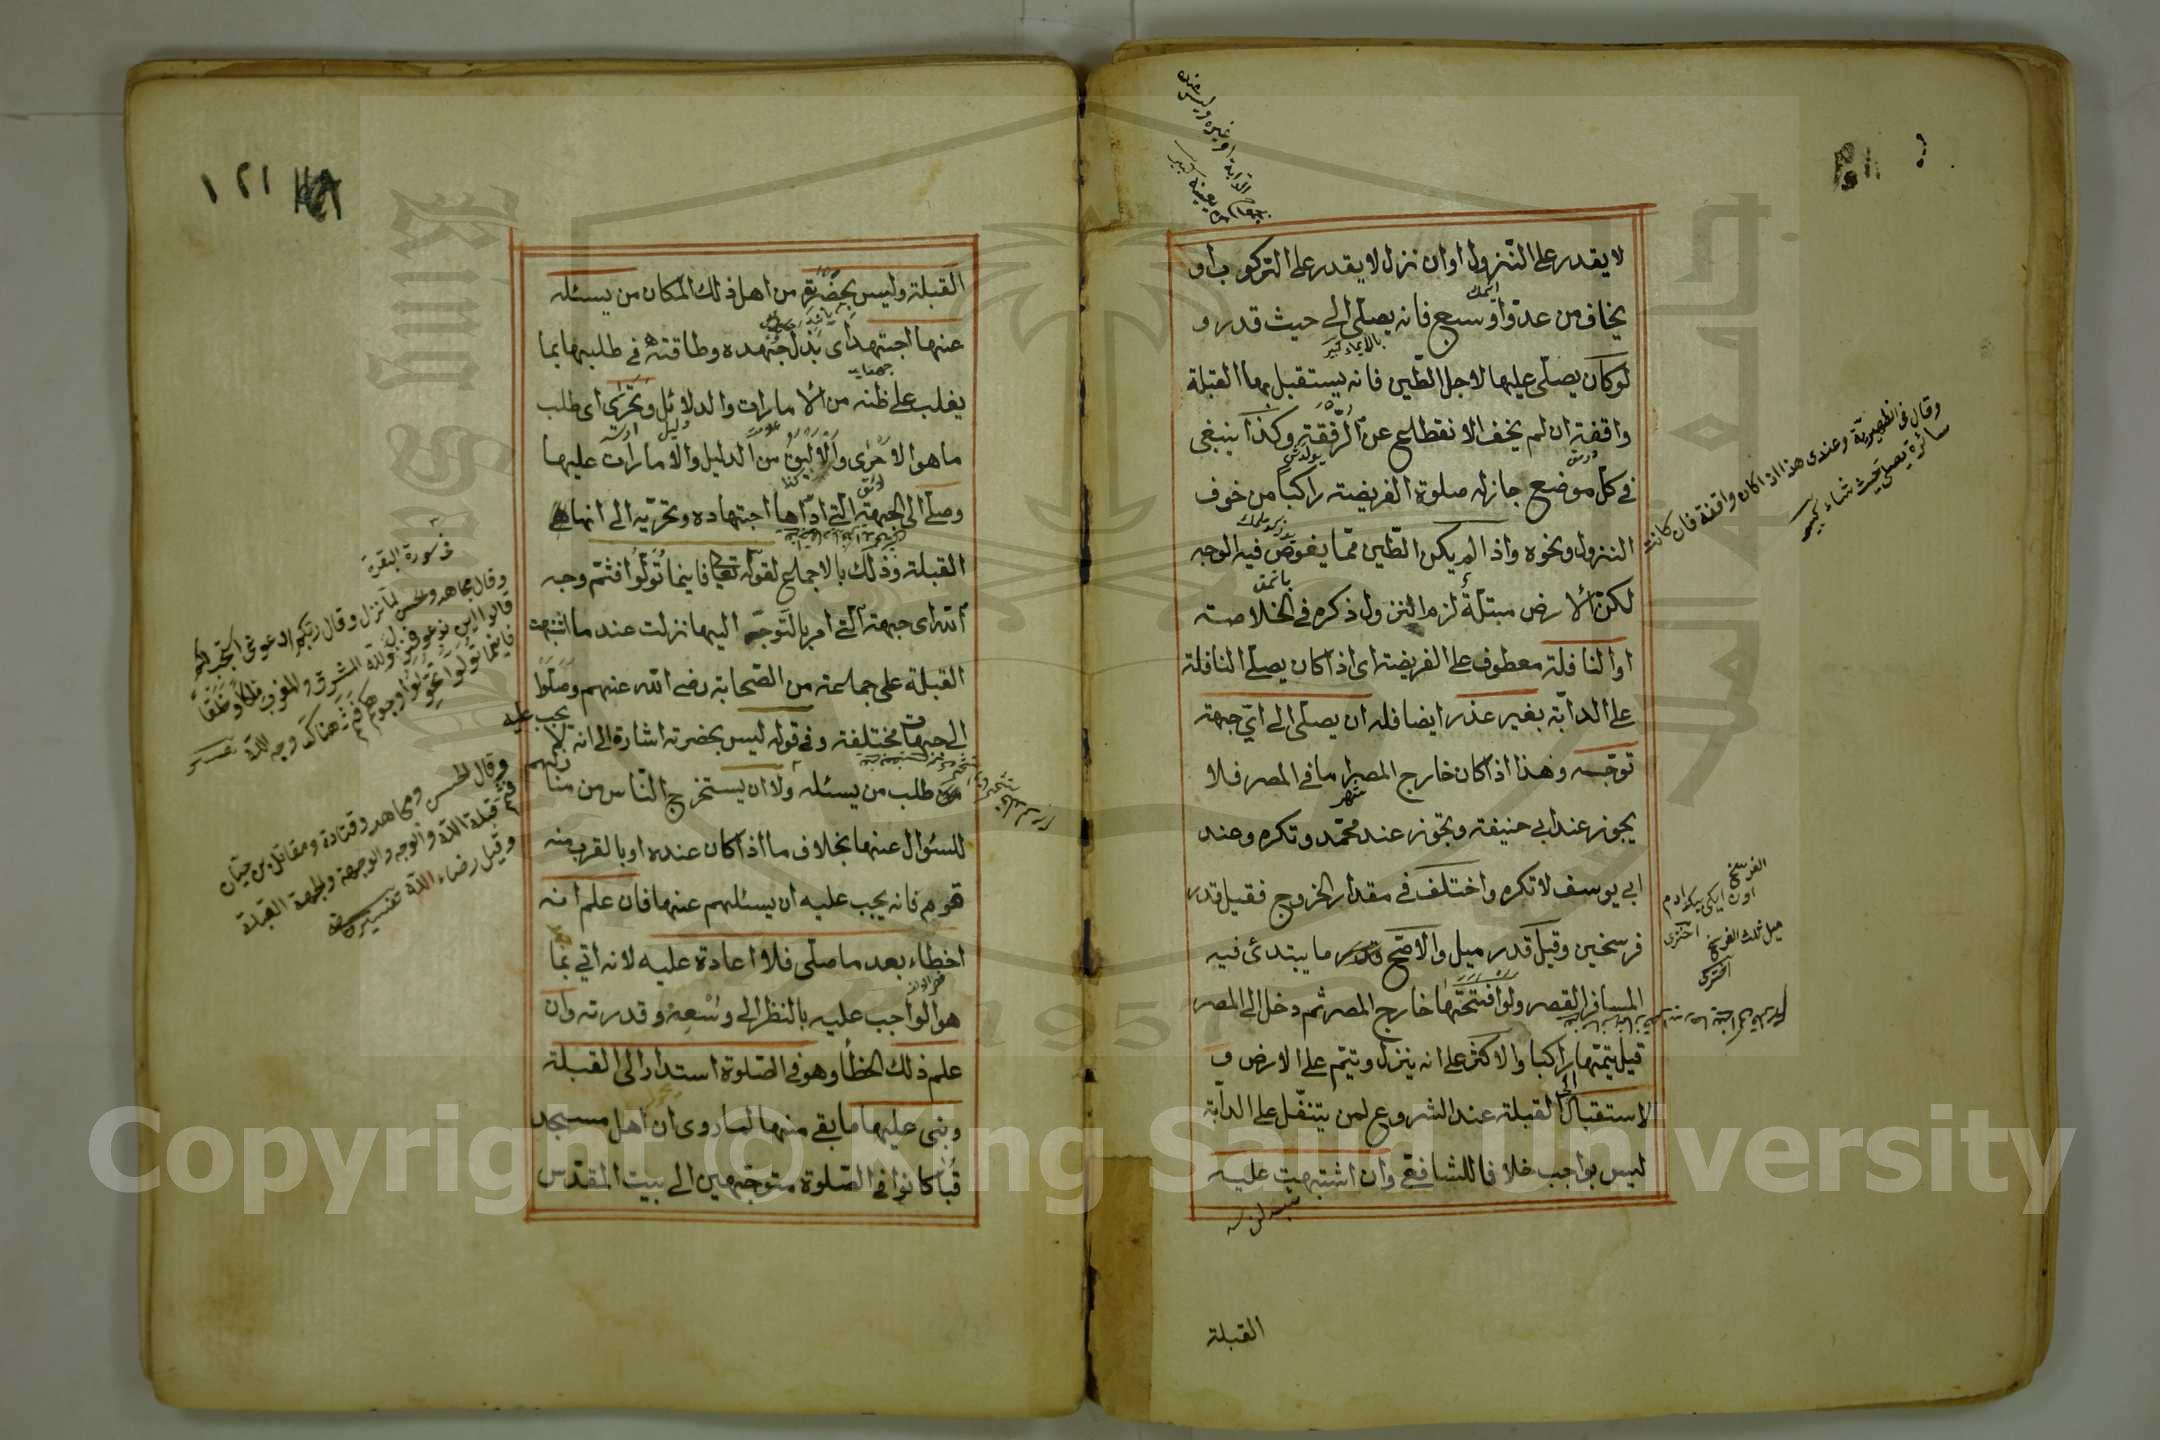 لا يقدر على النزول او ان نزل لا يقدر على الركوب او
يخاف من عدو او سبع فانه يصلى الى حيث قدر و
لو كان يصلى عليها لاجل الطين فانه يستقبل بها القبلة
واقفة ان لم يخف الانقطاع عن الرفقة وكذا ينبغى
فى كل موضع جاز له صلوة الفريضة راكبا من خوف
النزول ونحوه واذا لم يكن الطين مما يغوص فيه الوجه
لكن الارض مبتلة لزم النزول ذكره فى الخلاصة
او النافلة معطوف على الفريضة اى اذا كان يصلى النافلة
على الدابة بغير عذر ايضا فله ان يصلى الى اى جهة
توجه وهذا اذا كان خارج المصر اما فى المصر فلا
يجوز عند ابى حنيفة وتجوز عند محمد وتكره وعند
ابى يوسف لا تكره واختلف فى مقدار الخروج فقيل قدر
فرسخين وقيل قدر ميل والاصح ما يبتدئ فيه
المسافر القصر ولو افتتحها خارج المصر ثم دخل الى المصر
قيل يتمها راكبا والاكثر على انه ينزل ويتم على الارض و
الاستقبال الى القبلة عند الشروع لمن يتنفل على الدابة
ليس بواجب خلافا للشافعى وان اشتبهت عليه
القبلة
وقال فى الظهيرية وعندى هذا اذا كان واقفة فان كانت
سائرة يصلى حيث شاء كبير
الفرسخ
اون ايكى بيك ادم
اخترى
ميل ثلث الفرسخ
اخترى
١٢١
القبلة وليس بحضرته من اهل ذلك المكان من يسئله
عنها اجتهد اى بذل جهده وطاقته فى طلبها بما
يغلب على ظنه من الامارات والدلائل وتحرى اى طلب
ما هو الاحرى والاليق من الدليل والامارات عليها
وصلى الى الجهة التى اداها اجتهاده وتحريه الى انها
القبلة وذلك بالاجماع لقوله تعالى فاينما تولوا فثم وجه
الله اى جهته التى امر بالتوجه اليها نزلت عند ما اشتبهت
القبلة على جماعة من الصحابة رضى الله عنهم وصلوا
الى جهات مختلفة وفى قوله ليس بحضرته اشارة الى انه لا يجب عليه
طلب من يسئله ولا ان يستخرج الناس من منازلهم
للسئوال عنها بخلاف ما اذا كان عنده او بالقرب منه
قوم فانه يجب عليه ان يسئلهم عنها فان علم انه
اخطاء بعد ما صلى فلا اعادة عليه لانه اتى بما
هو الواجب عليه بالنظر الى وسعه وقدرته وان
علم ذلك الخطأ وهو فى الصلوة استدار الى القبلة
وبنى عليها ما بقى منها لما روى ان اهل مسجد
قبا كانوا فى الصلوة متوجهين الى بيت المقدس
فى سورة البقرة
وقال مجاهد وحسن لما نزل وقال ربكم ادعونى استجب لكم
قالوا اين ندعو فنزل ولله المشرق والمغرب
فاينما تولوا وجوهكم هناك وجه الله تفسير
وقال الحسن ومجاهد وقتادة ومقاتل بن حيان
فثم قبلة الله والوجه والوجهة والجهة القبلة
وقيل رضاء الله تفسير